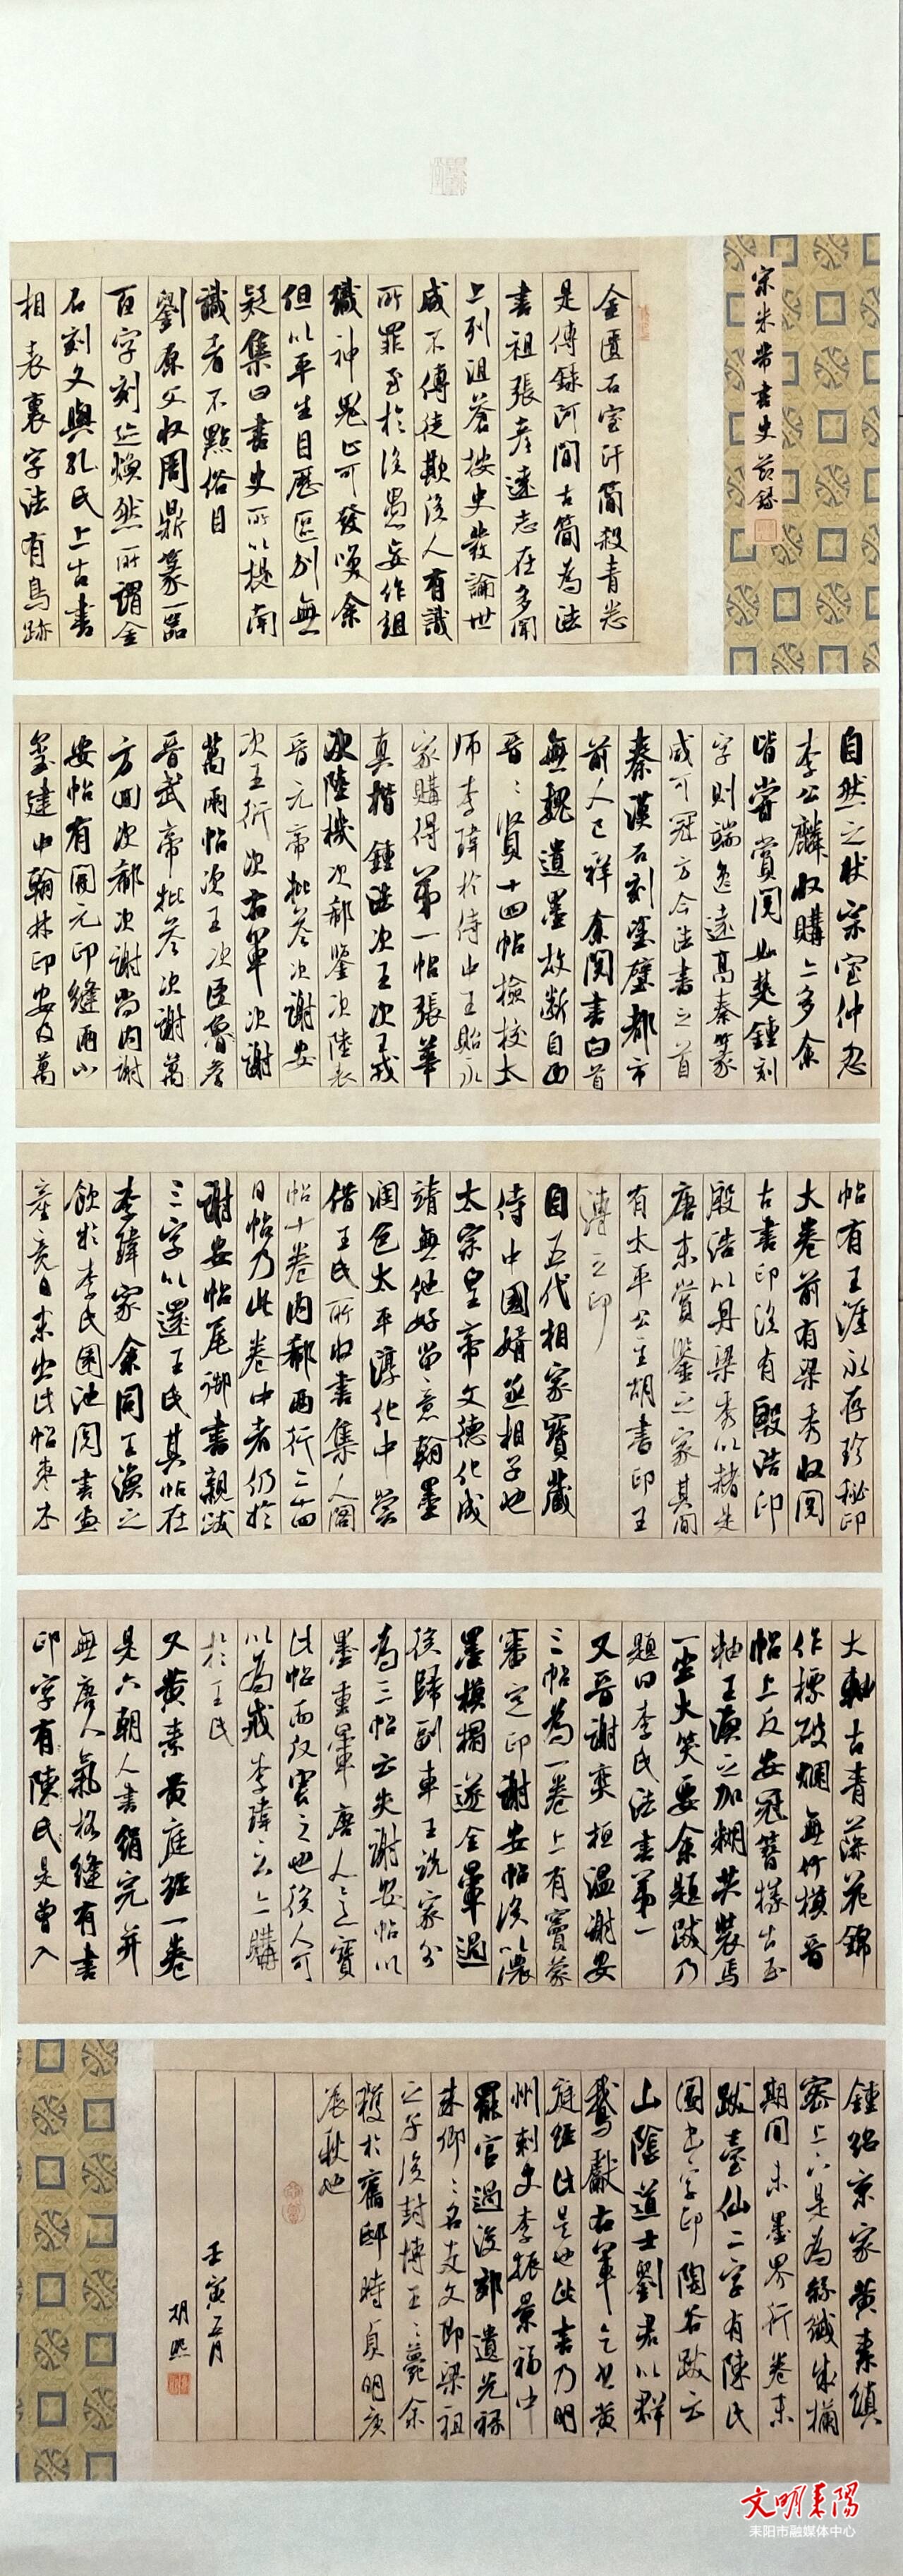 宋米芾書史節録
金匱石室汗簡殺青悉
是傳録河間古簡為法
書祖張彥遠志在多聞
上列沮蒼按史發論世
咸不傳徒欺後人有識
所罪至於後愚妄作組
織神鬼止可發笑余
但以平生目歷區別無
疑集曰書史所以提南
識者不點俗目
劉原父收周鼎篆一器
百字刻迹煥然所謂金
石刻文與孔氏上古書
相表裏字法有鳥跡
自然之狀宗室仲忽
李公麟收購亦多余
皆嘗賞閱如楚鍾刻
字則端逸遠高秦篆
咸可冠方今法書之首
秦漢石刻塗壁都市
前人已詳余閱書白首
無魏遺墨故斷自西
晉晉賢十四帖檢校太
師李瑋於侍中王貽永
家購得第一帖張華
真楷鍾法次王次王戎
次陸機次郗鑒次陸表
晉元帝批答次謝安
次王衍次右軍次謝
萬兩帖次王次臣詹答
晉武帝批答次謝萬
方回次郗次謝尚内謝
安帖有開元印縫兩小
璽建中翰林印安及萬
帖有王涯永存珍秘印
大卷前有梁秀收閱
古書印後有殷浩印
殷浩以丹梁秀以赭是
唐末賞鑒之家其間
有太平公主胡書印王
溥之印
自五代相家寶藏
侍中國婿丞相子也
太宗皇帝文德化成
靖無他好留意翰墨
潤色太平淳化中嘗
借王氏所收書集入閣
帖十卷内郗兩行二十四
日帖乃此卷中者仍於
謝安帖尾御書親跋
三字以還王氏其帖在
李瑋家余同王渙之
飲於李氏園池閱書畫
竟日末出此帖棗木
大軸古青藻花錦
作標破爛無竹模晉
帖上反安冠簪樣出玉
軸王渙之加糊共裝焉
一坐大笑要余題跋乃
題曰李氏法書第一
又晉謝奕桓温謝安
三帖為一卷上有竇蒙
審定印謝安帖後以濃
墨模搨遂全暈過
後歸副車王詵家分
為三帖云失謝安帖以
墨重暈唐人意寶
此帖而反害之也後人可
以為戒李瑋云亦購
於王氏
又黄素黄庭經一卷
是六朝人書絹完并
無唐人氣格縫有書
印字有陳氏是曾入
鍾紹京家黄素縝
密上下是為絲織成欄
期間朱墨界行卷末
跋臺仙二字有陳氏
圖書字印陶榖跋云
山陰道士劉君以群
鵝獻右軍乞書黄
庭經此是也此書乃明
州刺史李振景福中
罷官過浚郊遺光禄
朱卿卿名友文即梁祖
之子後封博王王薨余
獲於舊邸時貞明庚
辰秋也
壬寅五月
胡熙
文明耒陽
耒阳市融媒体中心